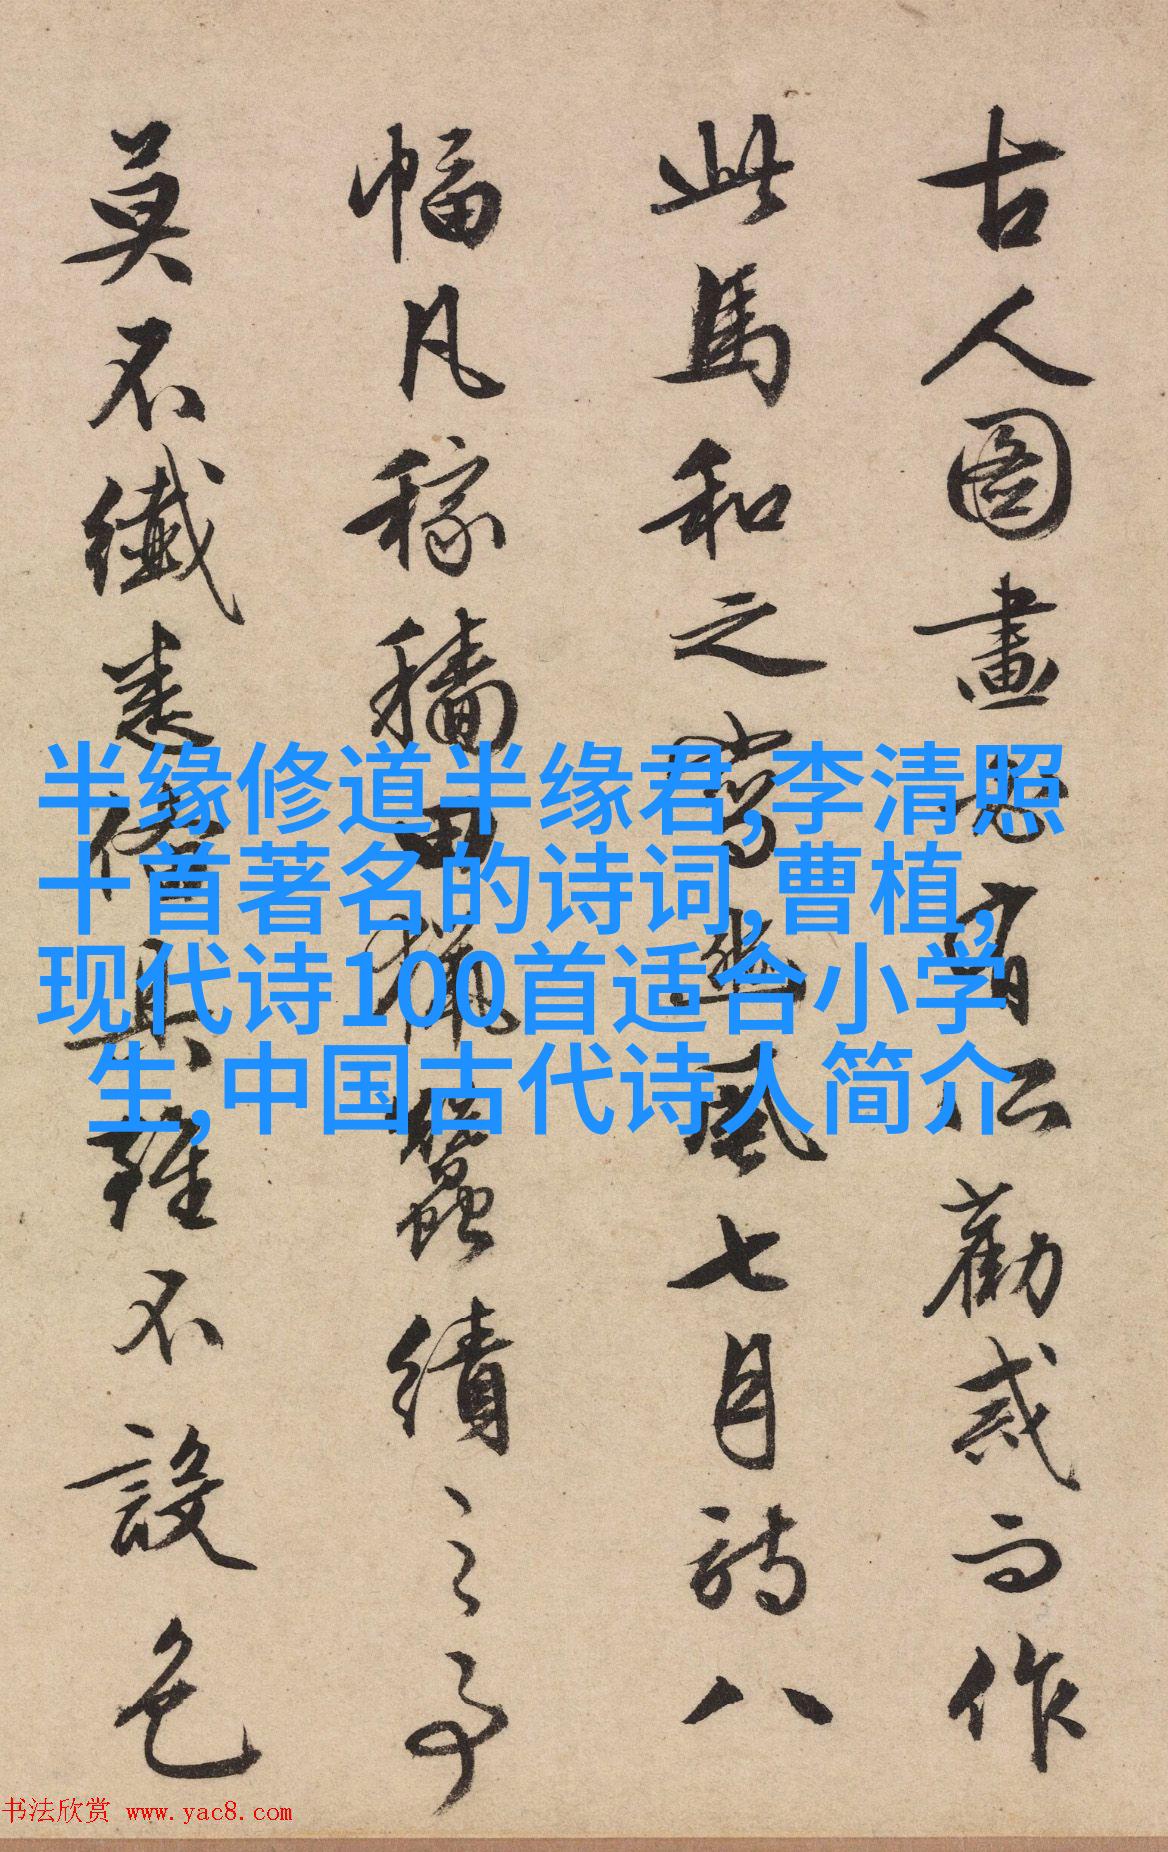 古人圖畫必有以勸戒而作
此馬和之寫豳風七月詩八
幅凡稼穡田獵蠶績之事
莫不纖悉備具雖不設色
半缘修道半缘君,李清照
十首著名的诗词,曹植,
现代诗100首适合小学
生,中国古代诗人简介
书法欣赏 www.yac8.com